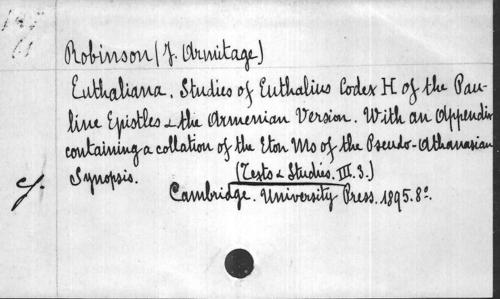 Robinson (J. Armitage)
Euthaliana. Studies of Euthalius Codex H of the Pau-
line Epistles & the Armenian Version. With an Appendix
containing a collation of the Eton Ms of the Pseudo-Athanasian
Synopsis. (Texts & Studies. III. 3.)
Cambridge. University Press. 1895. 8º.